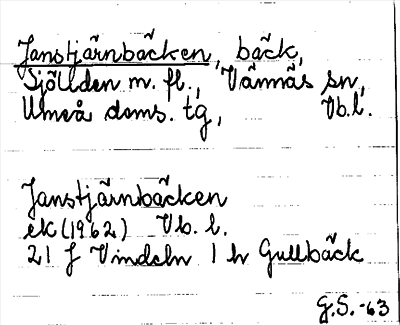 Janstjärnbäcken, bäck,
Sjöliden m. fl., Vännäs sn,
Umeå doms. tg, Vb.l.
Janstjärnbäcken
ek (1962) Vb. l.
21 J Vindeln 1 h Gullbäck
G.S. -63